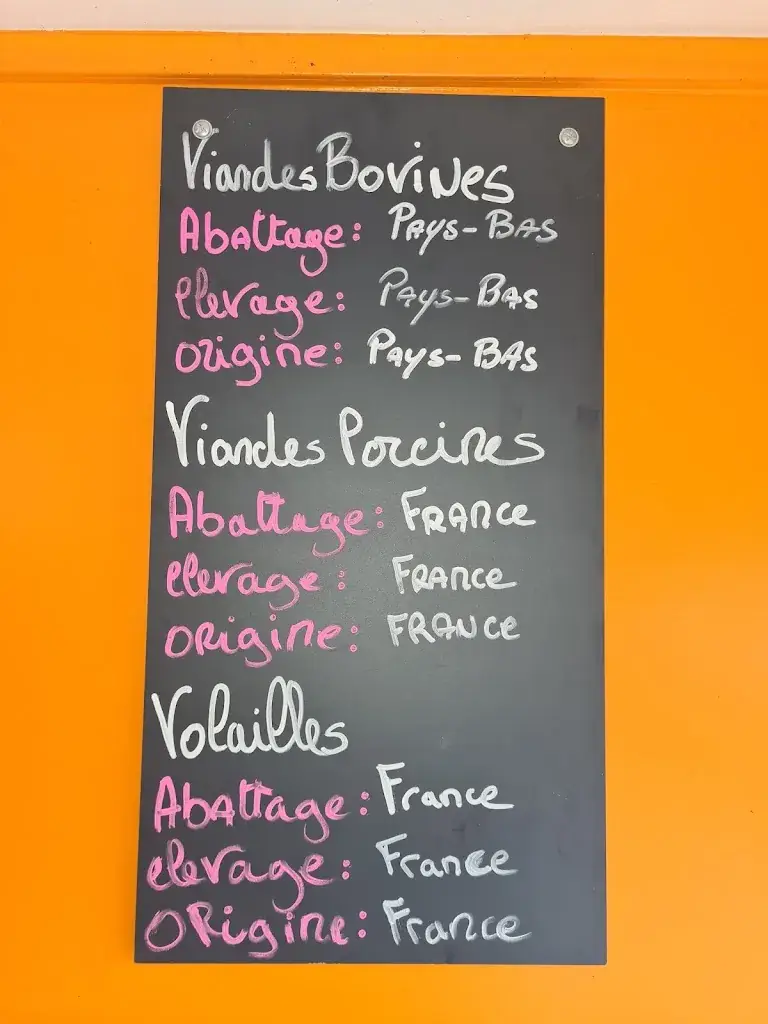 Viandes Bovines
Abattage: Pays-Bas
elevage: Pays-Bas
origine: Pays-Bas
Viandes Porcines
Abattage: France
elevage: France
origine: France
Volailles
Abattage: France
elevage: France
origine: France